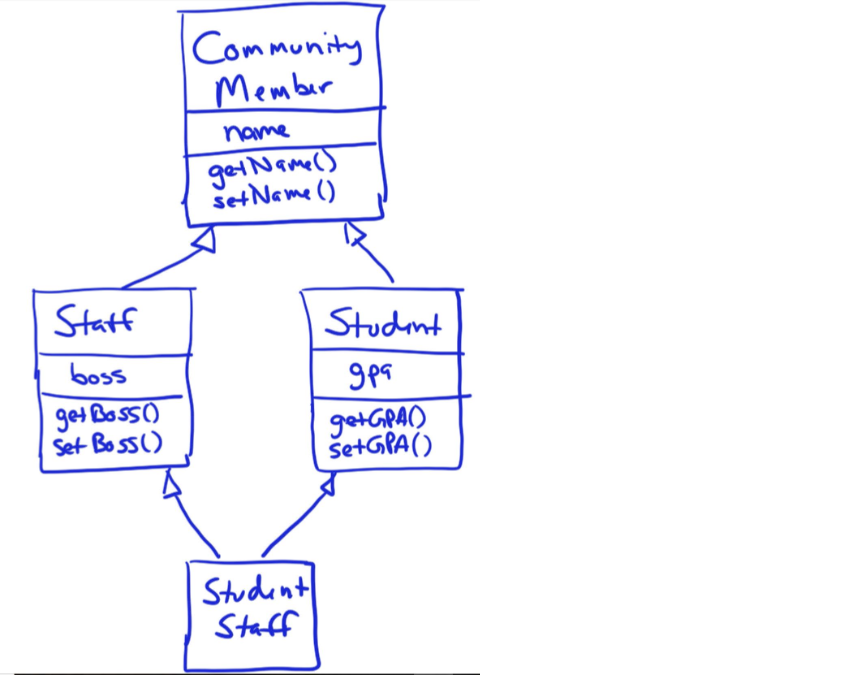 Community
Member
name
getName()
setName()
Staff
boss
getBoss()
setBoss()
Student
gpa
getGPA()
setGPA()
Student
Staff